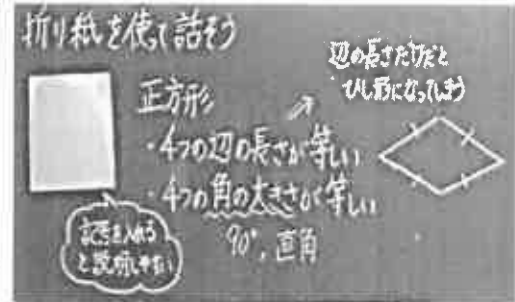 折り紙を使って話そう
正方形
・4つの辺の長さが等しい
・4つの角の大きさが等しい
90°、直角
辺の長さだけだと
ひし形になってしまう
記号を入れる
と説明しやすい